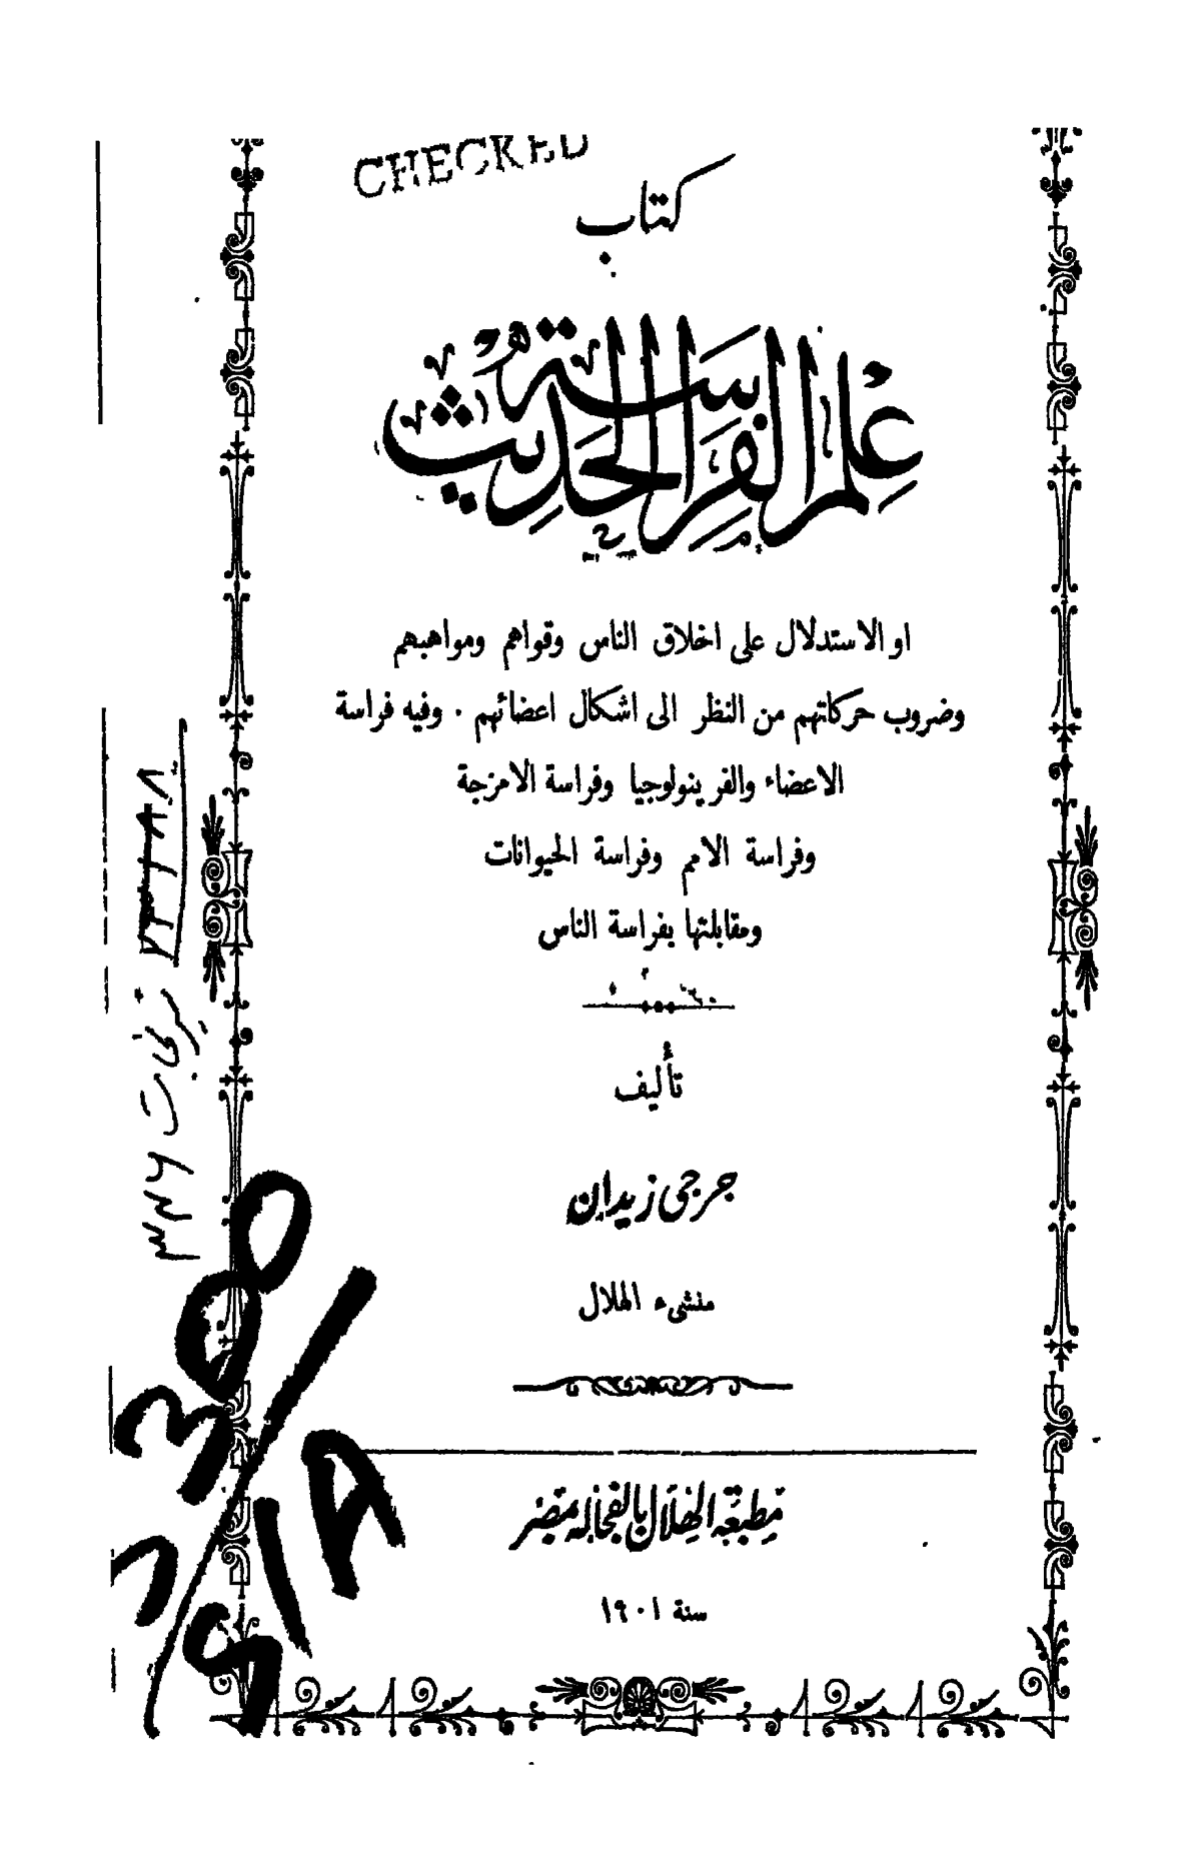 CHECKED
كتاب
علم الفراسة الحديث
او الاستدلال على اخلاق الناس وقواهم ومواهبهم
وضروب حركاتهم من النظر الى اشكال اعضائهم . وفيه فراسة
الاعضاء والفرينولوجيا وفراسة الامزجة
وفراسة الامم وفراسة الحيوانات
ومقابلتها بفراسة الناس
تأليف
جرجي زيدان
منشىء الهلال
مطبعة الهلال بالفجاله بمصر
سنة ١٩٠١